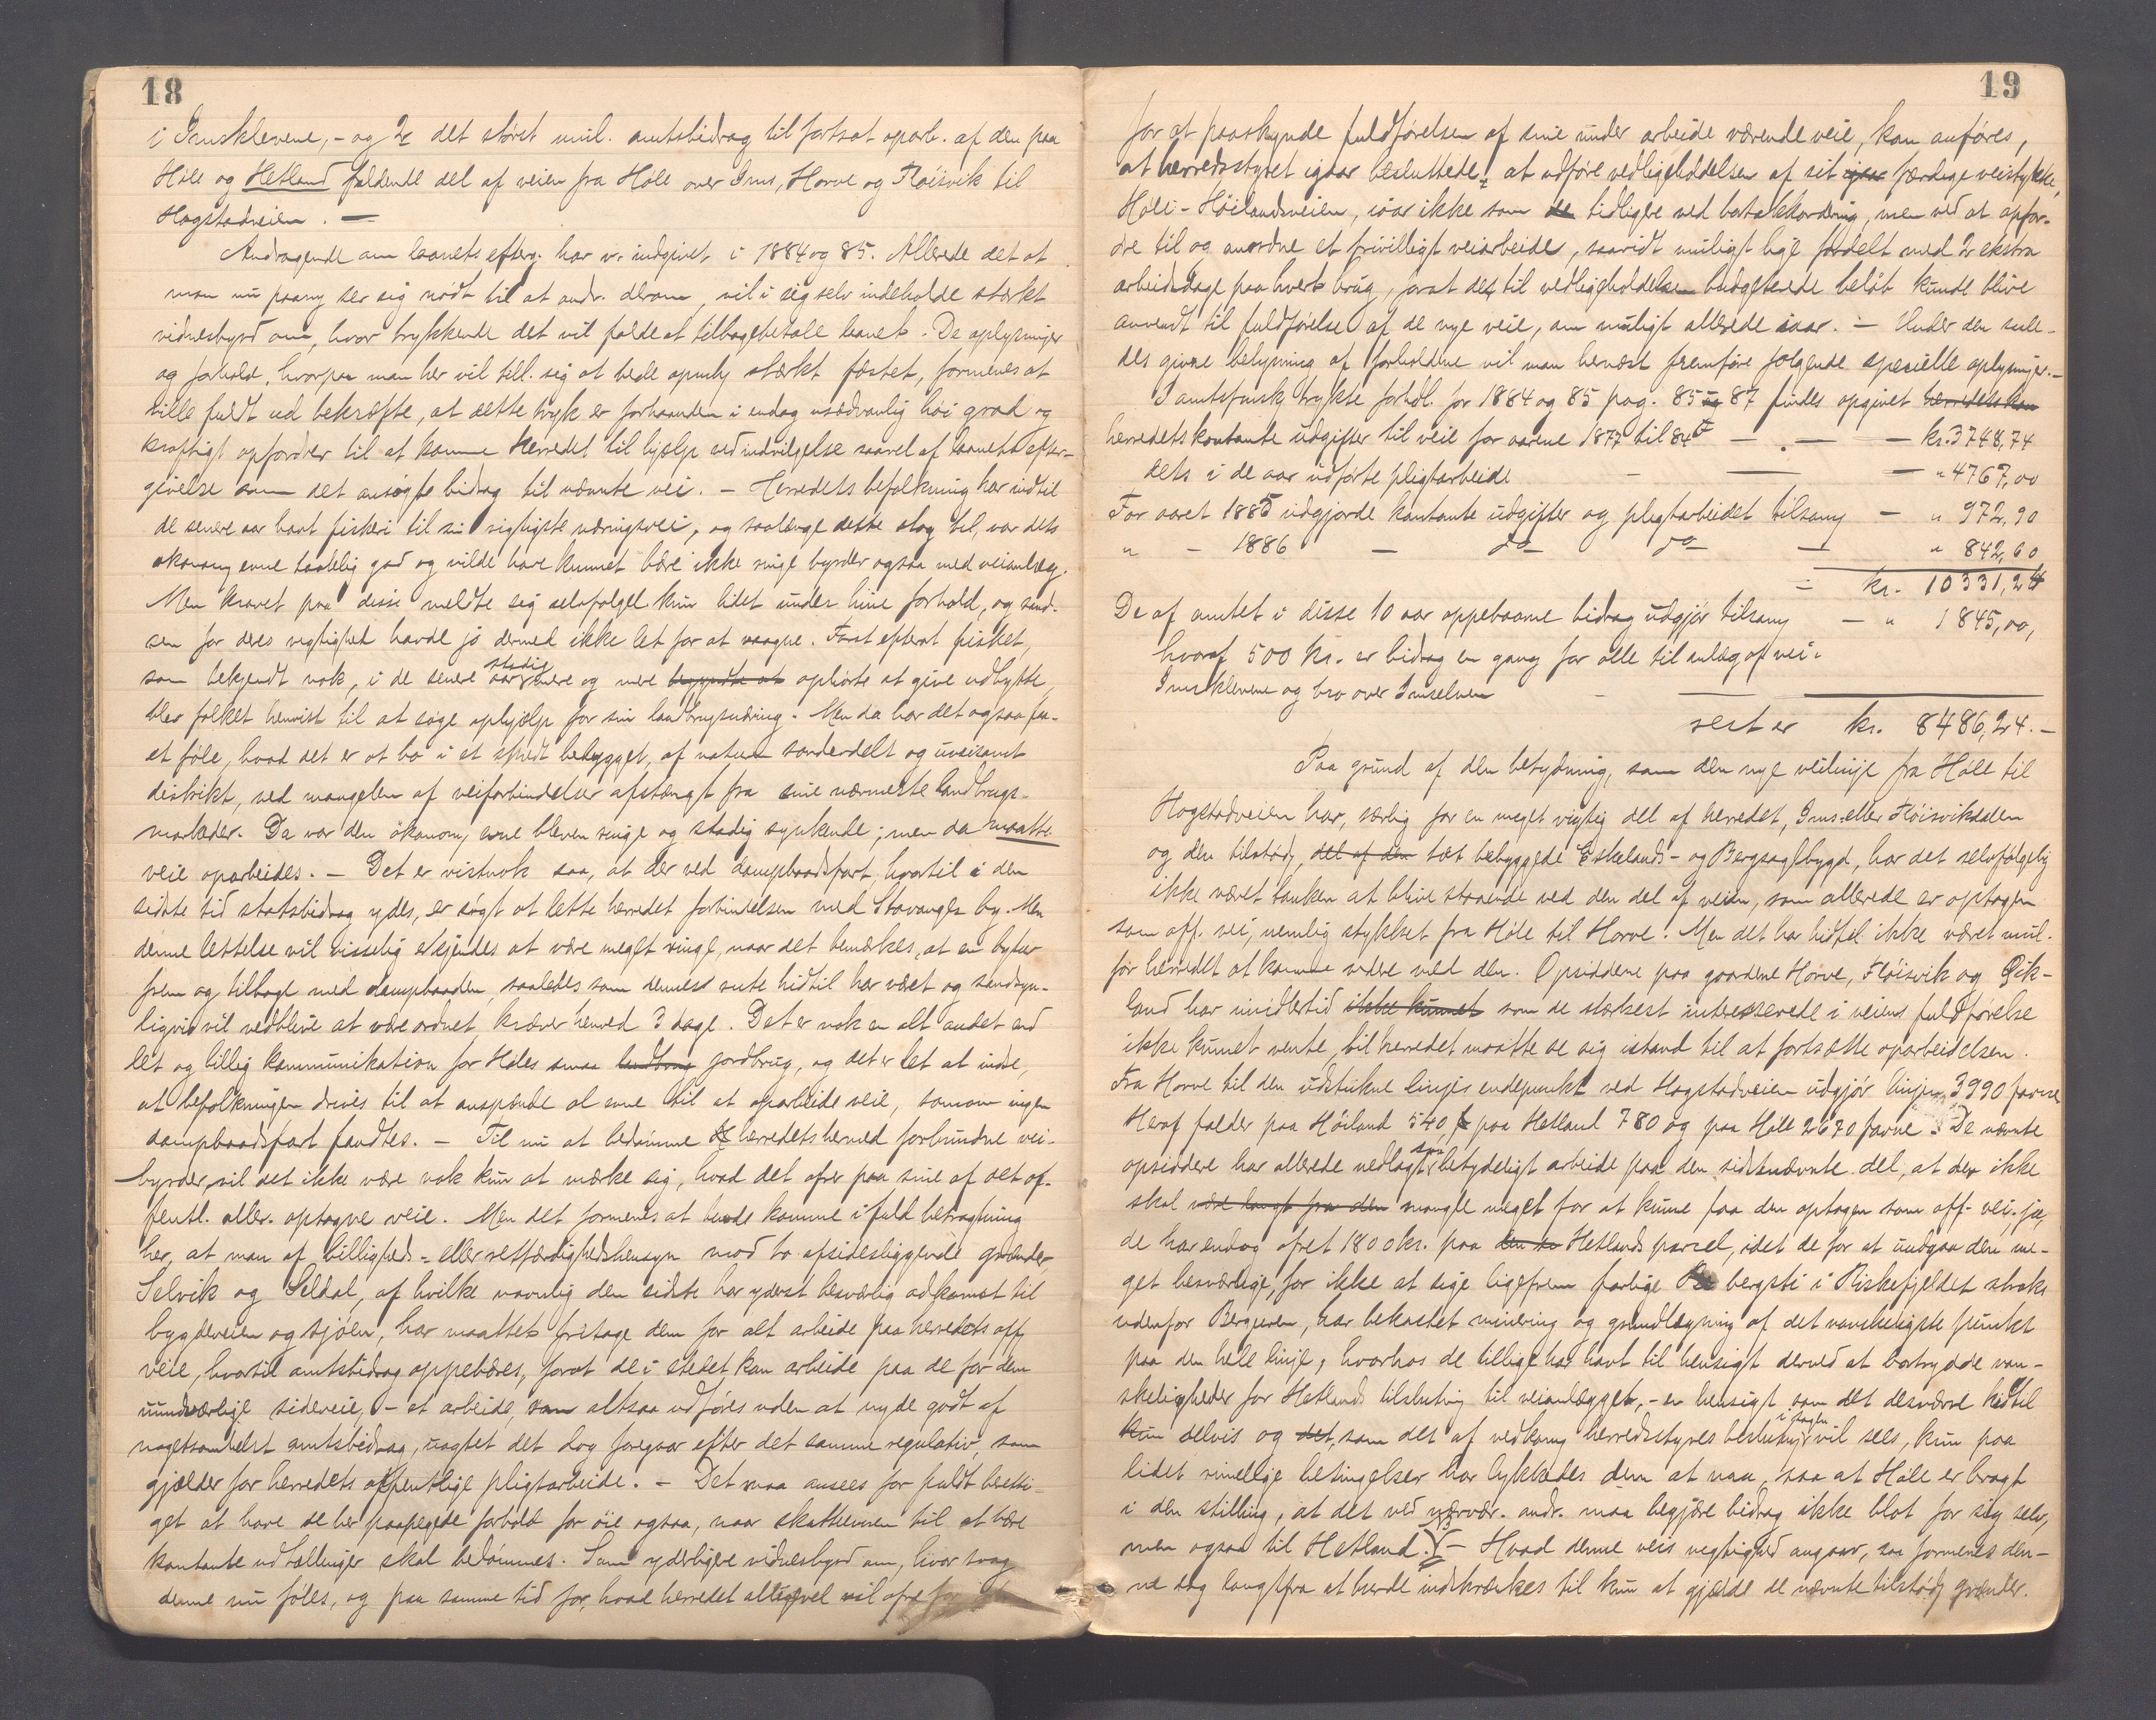 18
i Imsklevene, - og 2, det störst mul. amtsbidrag til fortsat oparb. af den paa
Höle og Hetland faldende del af veien fra Höle over Ims, Horve og Flöisvik til
Hogstadveien. —
Andragende om laanets efterg. har v. indgivet i 1884 og 85. Allerede det at
man nu paany ser sig nödt til at andr. derom, vil i sig selv indeholde stærkt
vidnesbyrd om, hvor trykkende det vil falde at tilbagebetale laanet. De oplysninger
og forhold, hvorpaa man her vil till. sig at bede opmerks. stærkt fæstet, formenes at
ville fuldt ud bekræfte, at dette tryk er forhaanden i endog usædvanlig höi grad og
kraftigt opfordrer til at komme herredet til hjælp ved indvilgelse saavel af laanets efter-
givelse som det ansögte bidrag til nævnte vei. - Herredets befolkning har indtil
de senere aar havt fiskeri til sin vigtigste næringsvei, og saalænge dette slog til, var dets
ökonom. evne taalelig god og vilde have kunnet bære ikke ringe byrder ogsaa med veianlæg.
Men kravet paa disse meldte sig selvfølgel. kun lidet under hine forhold, og sand-
sen for deres vegtighed havde jo dermed ikke let for at vaagne. Först efterat fisket,
som bekjendt nok, i de senere aar stadig mere og mere begyndte at ophörte at give udbytte,
blev folket henvist til at söge ophjælp for sin landbrugsnæring. Men da har det ogsaa faa-
et föle, hvad det er at bo i et spredt bebygget, af naturen sönderdelt og uveisomt
distrikt, ved mangelen af veiforbindelser afstængt fra sine nærmeste landbrugs-
markeder. Da var den ökonom. evne bleven ringe og stadig synkende; men da maatte
veie oparbeides. - Det er vistnok saa, at der ved dampbaadsfart, hvortil i den
sidste tid statsbidrag ydes, er sögt at lette herredet forbindelsen med Stavanger by. Men
denne lettelse vil visselig erkjendes at være meget ringe, naar det bemærkes, at en bytur
frem og tilbage med dampbaaden, saaledes som dennes rute hidtil har været og sandsyn-
ligvis vil vedblive at være ordnet, kræver henved 3 dage. Det er nok en alt andet end
let og billig kommunikation for Höles smaa landbrug jordbrug, og det er let at indse,
at befolkningen drives til at anspænde al evne til at oparbeide veie, somom ingen
dampbaadsfart fandtes. - Til nu at bedömme herredets herved forbundne vei-
byrder, vil det ikke være nok kun at mærke sig, hvad det ofrer paa sine af det of-
fentl. aller. optagne veie. Men det formenes at burde komme i fuld betragtning
her, at man af billigheds- eller retfærdighedshensyn mod to afsidesliggende grænder
Selvik og Seldal, af hvilke navnlig den sidste har yderst besværlig adkomst til
bygdeveien og sjöen, har maattet fritage dem for alt arbeide paa herredets off.
veie, hvortil amtsbidrag oppebæres, forat de i stedet kan arbeide paa de for dem
uundværlige sideveie, - et arbeide, som altsaa udföres uden at nyde godt af
nogetsomhelst amtsbidrag, uagtet det dog foregaar efter det samme regulativ, som
gjælder for herredets offentlige pligtarbeide. - Det maa ansees for fuldt beretti-
get at have de her paapegede forhold for öie ogsaa, naar skatteevnen til at bære
kontante udtællinger skal bedömmes. Som yderligere vidnesbyrd om, hvor svag
denne nu föles, og paa samme tid for, hvad herredet alligevel vil ofre for
19
for at paaskynde fuldförelsen af sine under arbeide værende veie, kan anföres,
at herredsstyret igaar besluttede at udföre vedligeholdelsen af sit igaar færdige veistykke,
Höle-Höilandsveien, iaar ikke som de tidligere ved bortakkordering, men ved at opfor-
dre til og anordne et frivilligt veiarbeide, saavidt muligt lige fordelt med 2 ekstra
arbeidsdage paa hvert brug, forat det til vedligeholdelsen budgeterede belöb kunde blive
anvendt til fuldförelse af de nye veie, om muligt allerede iaar. - Under den saale-
des givne belysning af forholdene vil man hernæst fremföre fölgende specielle oplysninger. -
I amtsformsk. trykte forhdl. for 1884 og 85 pag. 85 og 87 findes opgivet herredets kon
herredets kontante udgifter til veie for aarene 1877 til 84 — . — — kr. 3748,74
dets i de aar udförte pligtarbeide — — — " 4767,00
For aaret 1885 udgjorde kontante udgifter og pligtarbeidet tilsam. — " 972,90
" - 1886 — do do — " 842,60
= kr. 10331,24
De af amtet i disse 10 aar oppebaarne bidrag udgjör tilsam. — " 1845,00,
hvoraf 500 kr. er bidrag en gang for alle til anlæg af vei i
Imsklevene og bro over Imselven — — —
rest er kr. 8486,24. -
Paa grund af den betydning, som den nye veilinje fra Höle til
Hogstadveien har, særlig for en meget vigtig del af herredet, Ims- eller Flöisvikdalen
og den tilstöd. del af den tæt bebyggede Eskelands- og Bergsagelbygd, har det selvfölgelig
ikke været tanken at blive staaende ved den del af veien, som allerede er optagen
som off. vei, nemlig stykket fra Höle til Horve. Men det har hidtil ikke været mul.
for herredet at komme videre med den. Opsidderne paa gaardene Horve, Flöisvik og Eik-
land har imidlertid ikke kunnet som de stærkest interesserede i veiens fuldförelse
ikke kunnet vente, til herredet maatte se sig istand til at fortsætte oparbeidelsen.
Fra Horve til den udstukne linjes endepunkt ved Hogstadveien udgjör linjen 3990 favne
Heraf falder paa Höiland 540, paa Hetland 780 og paa Höle 2670 favne. De nævnte
opsiddere har allerede nedlagt saa betydeligt arbeide paa den sidstnævnte del, at der ikke
skal være langt fra den mangle meget for at kunne faa den optagen som off. vei, ja,
de har endog ofret 1800 kr. paa den to Hetlands parcel, idet de for at undgaa den me-
get besværlige, for ikke at sige ligefrem farlige bergsti i Riskefjeldet straks
udenfor Bergeren, har bekostet minering og grundlægning af det vanskeligste punkt
paa den hele linje, hvorhos de tillige har havt til hensigt derved at bortrydde van-
skeligheder for Hetlands tilslutning til veianlægget, - en hensigt som det desværre hidtil
kun delvis og det, som det af vedkom. herredsstyres beslutning i sagen vil sees, kun paa
lidet rimelige betingelser har lykkedes dem at naa, saa at Höle er bragt
i den stilling, at det ved nærvær. andr. maa begjære bidrag ikke blot for sig selv,
men ogsaa til Hetland. - Hvad denne veis vegtighed angaar, saa formenes den-
ne dog langtfra at burde indskrænkes til kun at gjælde de nævnte tilstöd. grænder.